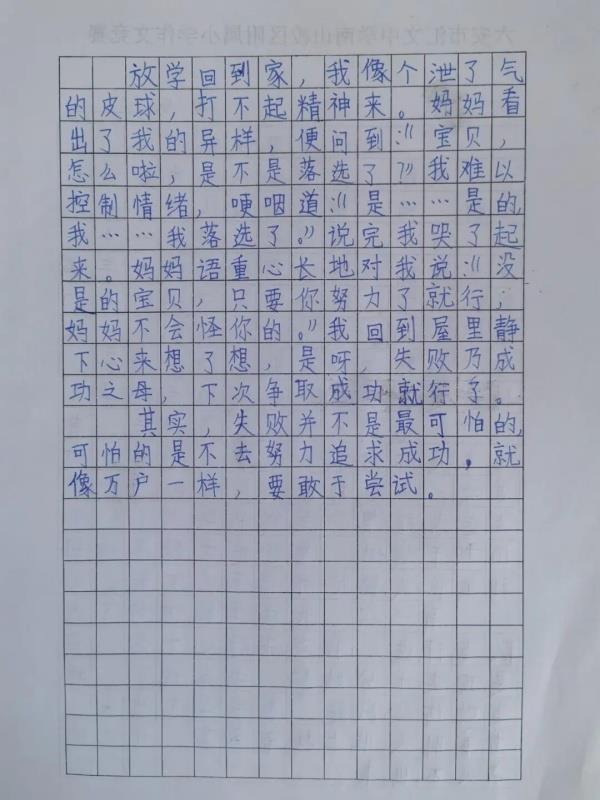 放学回到家，我像个泄了气
的皮球，打不起精神来。妈妈看
出了我的异样，便问到：“宝贝，
怎么啦，是不是落选了？”我难以
控制情绪，哽咽道：“是……是的，
我……我落选了。”说完我哭了起
来。妈妈语重心长地对我说：“没
是的宝贝，只要你努力了就行，
妈妈不会怪你的。”我回到屋里静
下心来想了想，是呀，失败乃成
功之母，下次争取成功就行了。
其实，失败并不是最可怕的，
可怕的是不去努力追求成功，就
像万户一样，要敢于尝试。